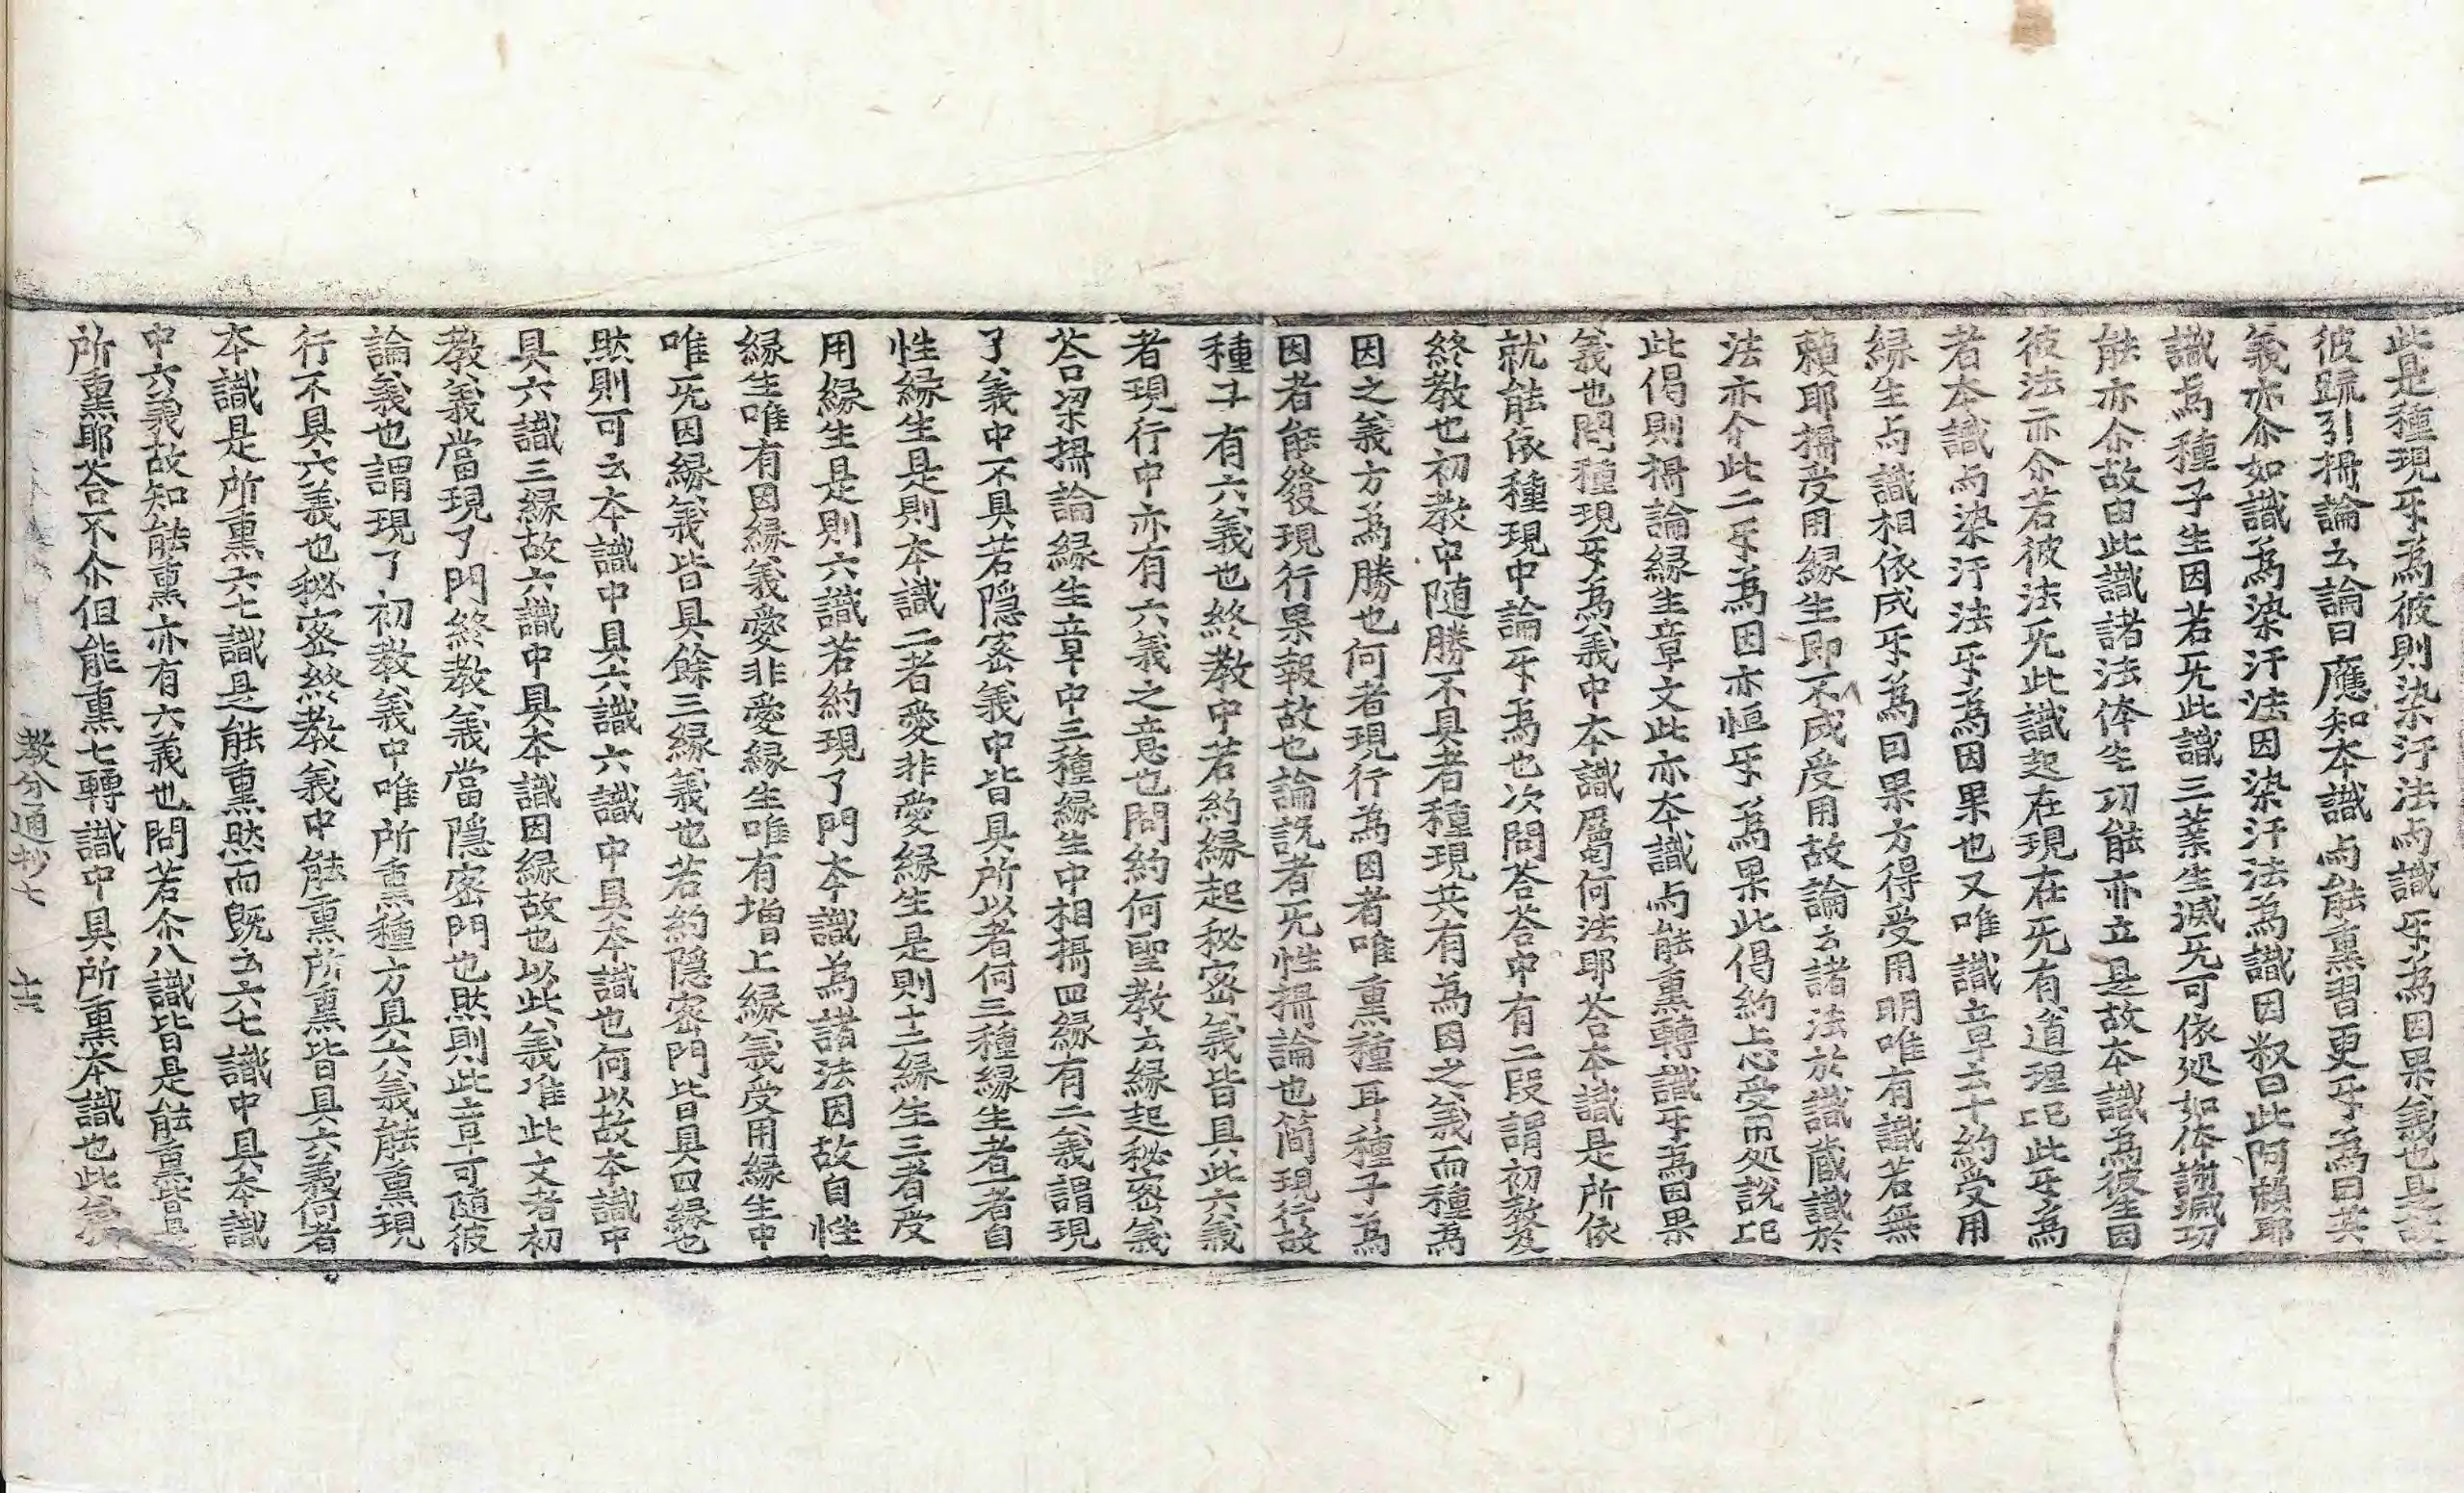 此是種現㸦為彼則染汙法与識㸦為因果義也是故
彼䟽引攝論云論曰應知本識与能熏習更㸦為因其
義亦尒如識為染汙法因染汙法為識因釈曰此阿頼耶
識為種子生因若无此識三業生滅无可依処如体謝滅功
能亦尒故由此識諸法体生功能亦立是故本識為彼生因
彼法亦尒若彼法无此識起在現在无有道理已此㸦為
者本識与染汙法㸦為因果也又唯識章云十約受用
緣生与識相依成㸦為因果方得受用明唯有識若無
頼耶攝受用緣生即不成受用故論云諸法於識蔵識於
法亦尒此二㸦為因亦恒㸦為果此偈約上心受用処說已
此偈則攝論緣生章文此亦本識与能熏轉識㸦為因果
義也問種現㸦為義中本識属何法耶荅本識是所依
就能依種現中論㸦為也次問荅荅中有二段謂初教及
終教也初教中随勝不具者種現共有為因之義而種為
因之義方為勝也何者現行為因者唯熏種耳種子為
因者能發現行果報故也論說者无性攝論也簡現行故
種子有六義也終教中若約緣起秘密義皆具此六義
者現行中亦有六義之意也問約何聖教云緣起秘密義
荅梁攝論緣生章中三種緣生中相攝四緣有二義謂現
了義中不具若隱密義中皆具所以者何三種緣生者一者自
性緣生是則本識二者愛非愛緣生是則十二緣生三者受
用緣生是則六識若約現了門本識為諸法因故自性
緣生唯有因緣義愛非愛緣生唯有增上緣義受用緣生中
唯无因緣義皆具餘三緣義也若約隱密門皆具四緣也
然則可云本識中具六識六識中具本識也何以故本識中
具六識三緣故六識中具本識因緣故也以此義准此文者初
教義當現了門終教義當隱密門也然則此章可随彼
論義也謂現了初教義中唯所熏種方具六義能熏現
行不具六義也秘密終教義中能熏所熏皆具六義何者
本識是所熏六七識是能熏然而既云六七識中具本識
中六義故知能熏亦有六義也問若尒八識皆是能熏皆是
所熏耶荅不尒但能熏七轉識中具所熏本識也此義
教分通抄七 十三